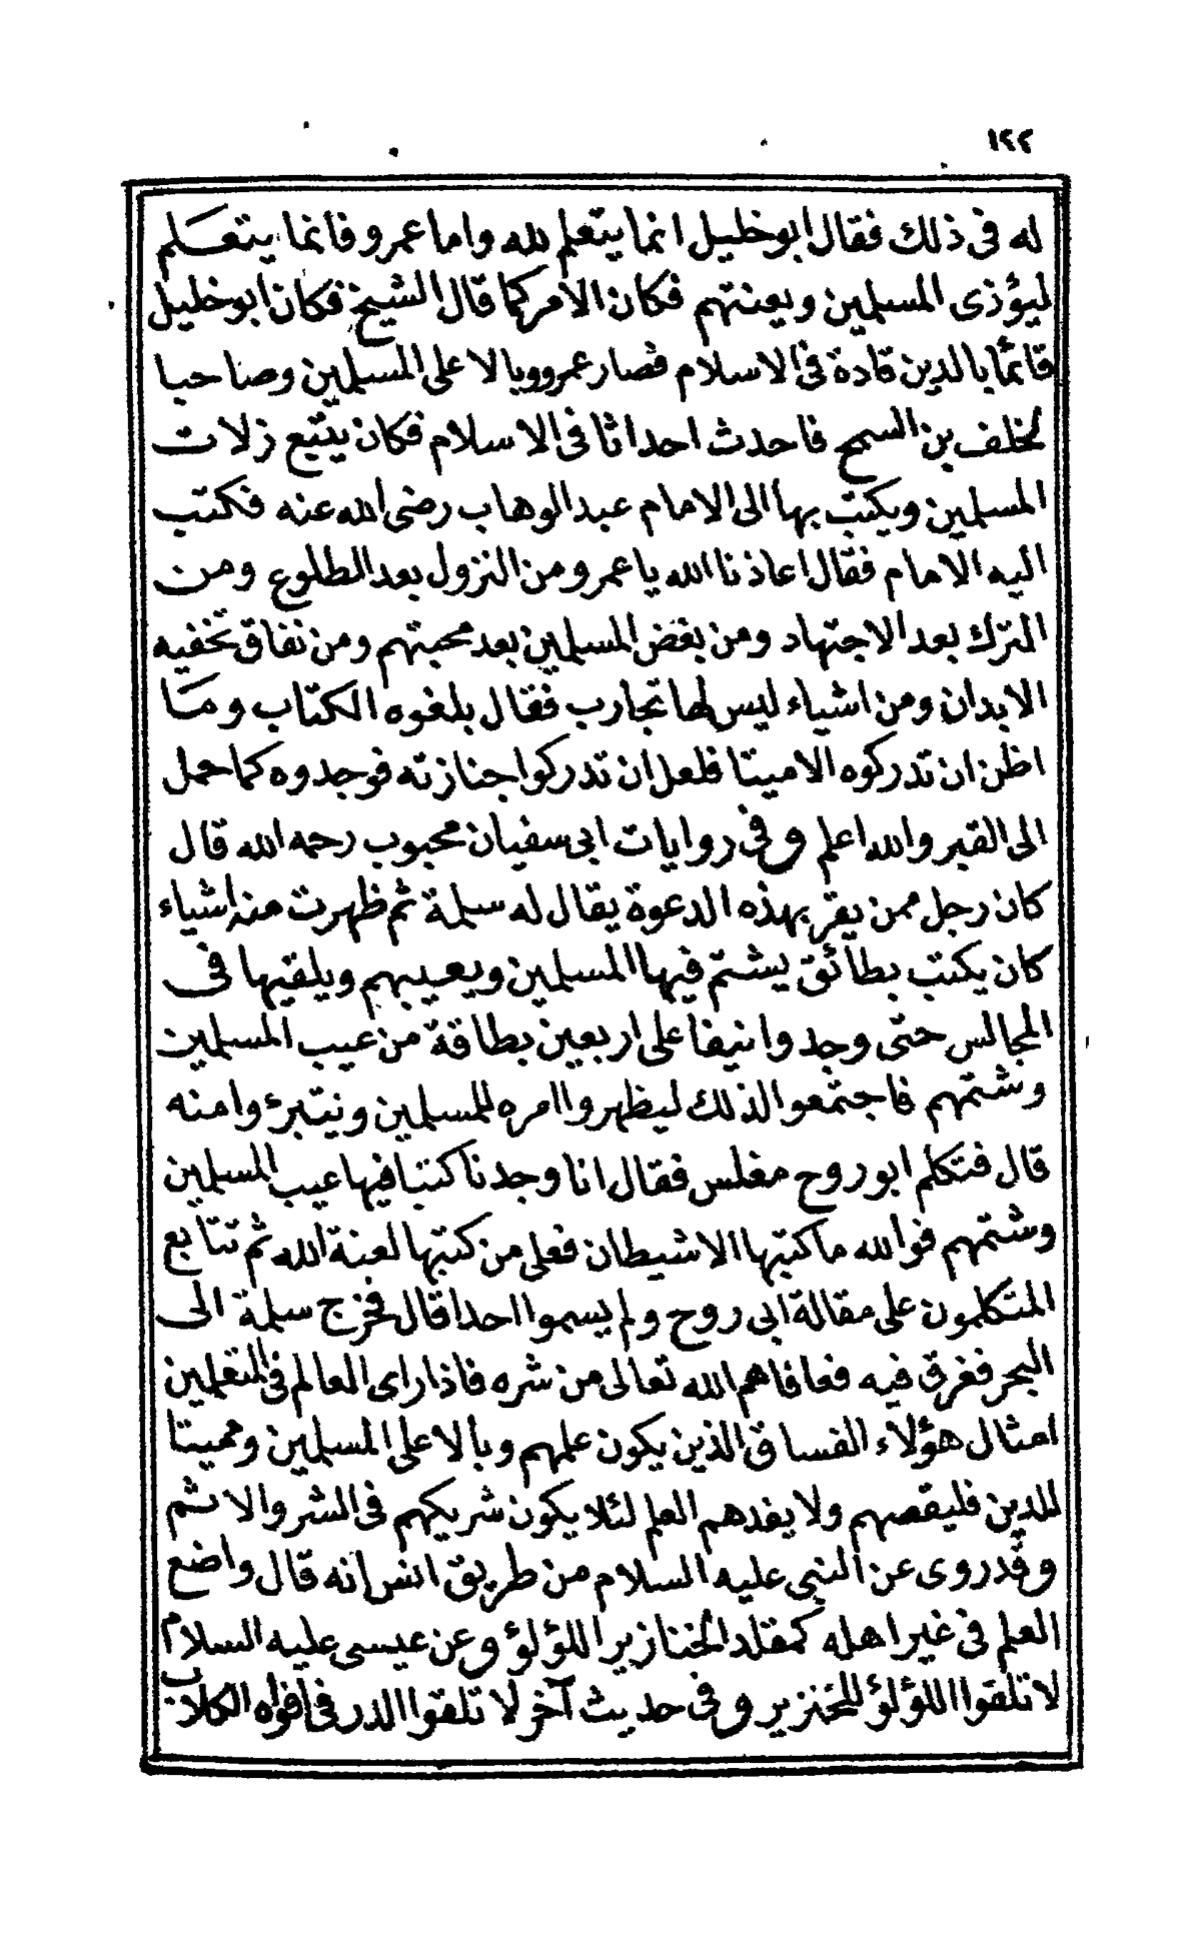 ١٢٢
له فى ذلك فقال ابو خليل انما يتعلم لله واما عمرو فانما يتعلم
ليؤذى المسلمين ويعنتهم فكان الامر كما قال الشيخ فكان ابو خليل
قائما بالدين قادة فى الاسلام فصار عمرو وبالا على المسلمين وصاحبا
لخلف بن السمح فاحدث احداثا فى الاسلام فكان يتبع زلات
المسلمين ويكتب بها الى الامام عبد الوهاب رضى الله عنه فكتب
اليه الامام فقال اعاذنا الله يا عمرو من النزول بعد الطلوع ومن
الترك بعد الاجتهاد ومن بغض المسلمين بعد محبتهم ومن نفاق تخفيه
الابدان ومن اشياء ليس لها تجارب فقال بلغوه الكتاب وما
اظن ان تدركوه الا ميتا فلعل ان تدركوا جنازته فوجدوه كما حمل
الى القبر والله اعلم وفى روايات ابى سفيان محبوب رحمه الله قال
كان رجل ممن يقر بهذه الدعوة يقال له سلمة ثم ظهرت منه اشياء
كان يكتب بطائق يشتم فيها المسلمين ويعيبهم ويلقيها فى
المجالس حتى وجدوا نيفا على اربعين بطاقة من عيب المسلمين
وشتمهم فاجتمعوا لذلك ليظهروا امره للمسلمين ونيتبرءوا منه
قال فتكلم ابو روح مغلس فقال انا وجدنا كتبا فيها عيب المسلمين
وشتمهم فوالله ما كتبها الا شيطان فعلى من كتبها لعنة الله ثم تتابع
المتكلمون على مقالة ابى روح ولم يسموا احدا قال فخرج سلمة الى
البحر فغرق فيه فعافاهم الله تعالى من شره فاذا راى العالم فى المتعلمين
امثال هؤلاء الفساق الذين يكون علمهم وبالا على المسلمين ومميتا
للدين فليقصهم ولا يفدهم العلم لئلا يكون شريكهم فى الشر والاثم
وقد روى عن النبى عليه السلام من طريق انس انه قال واضع
العلم فى غير اهله كمقلد الخنازير اللؤلؤ وعن عيسى عليه السلام
لا تلقوا اللؤلؤ للخنزير وفى حديث آخر لا تلقوا الدر فى افواه الكلاب